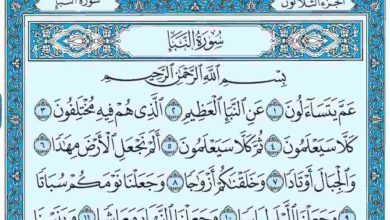 الجزء الثلاثون سورة النبأ
سُورَةُ النَّبَإِ
بِسْمِ ٱللَّهِ ٱلرَّحْمَٰنِ ٱلرَّحِيمِ
عَمَّ يَتَسَآءَلُونَ ١ عَنِ ٱلنَّبَإِ ٱلْعَظِيمِ ٢ ٱلَّذِى هُمْ فِيهِ مُخْتَلِفُونَ ٣
كَلَّا سَيَعْلَمُونَ ٤ ثُمَّ كَلَّا سَيَعْلَمُونَ ٥ أَلَمْ نَجْعَلِ ٱلْأَرْضَ مِهَٰدًا ٦
وَٱلْجِبَالَ أَوْتَادًا ٧ وَخَلَقْنَٰكُمْ أَزْوَٰجًا ٨ وَجَعَلْنَا نَوْمَكُمْ سُبَاتًا